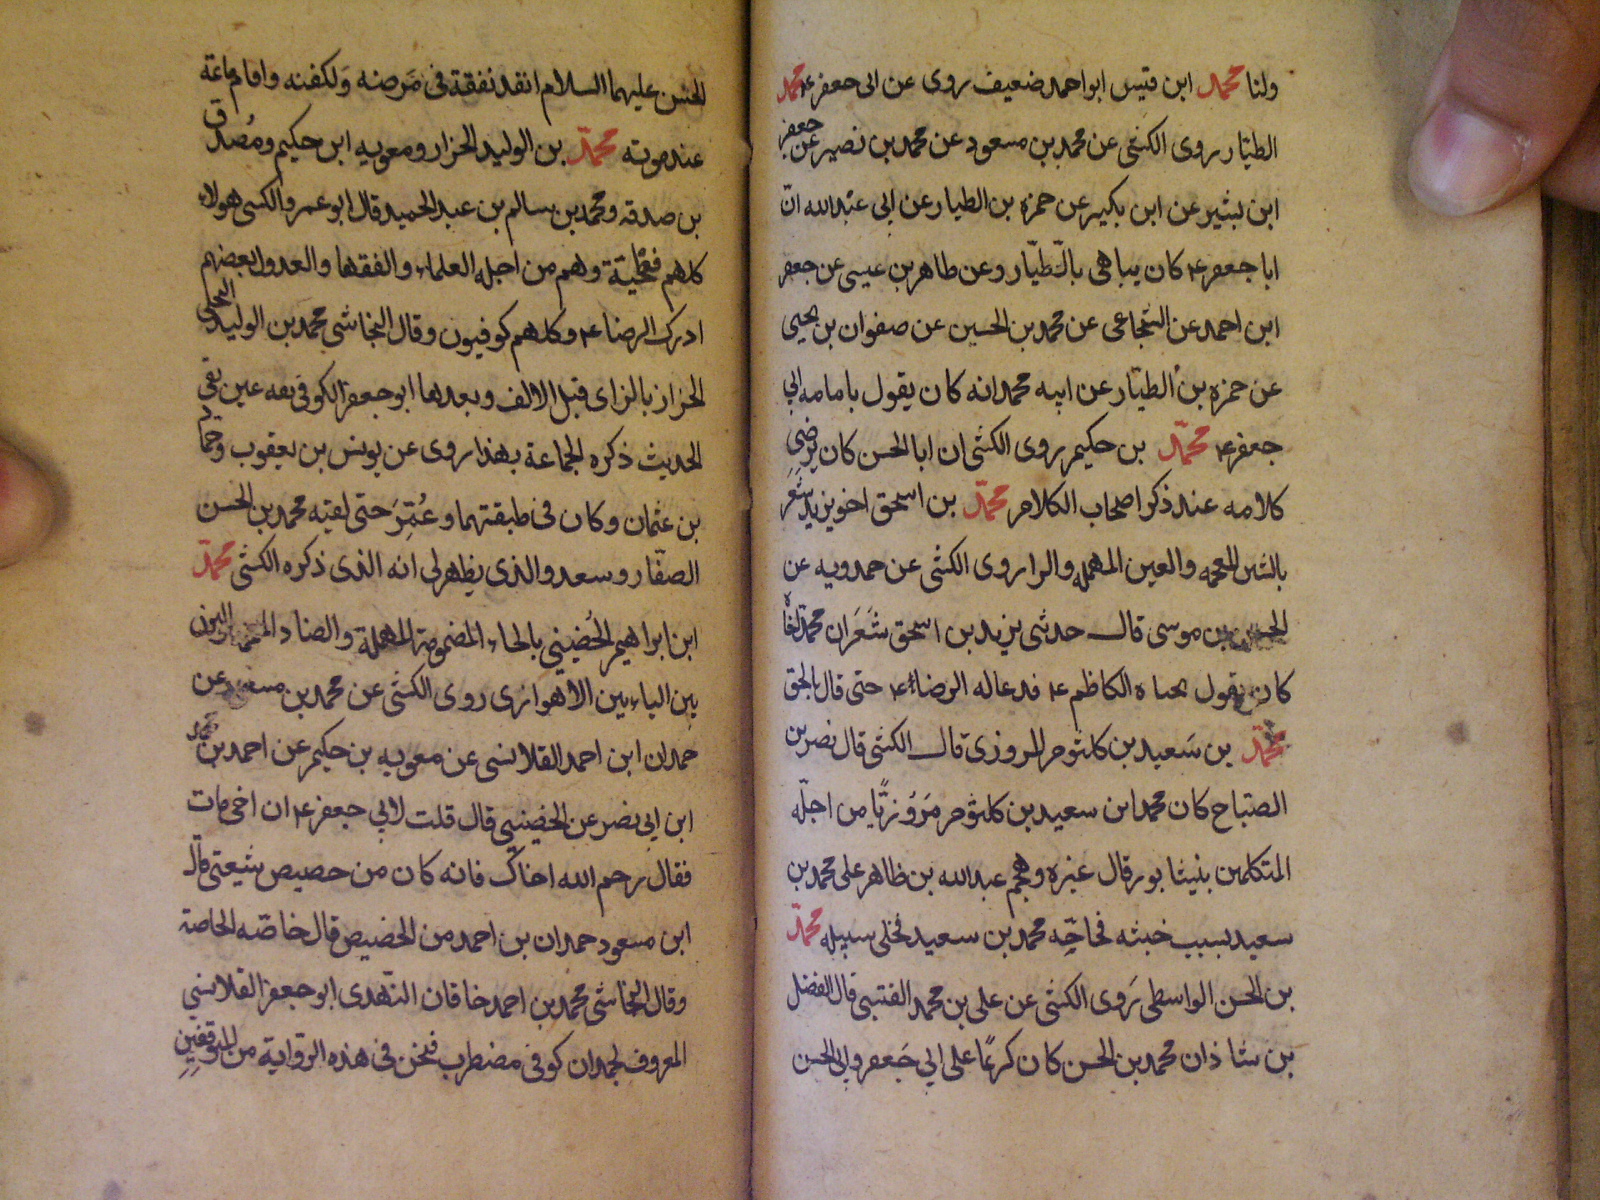 ولنا محمد ابن قيس ابو احمد ضعيف روى عن ابى جعفر ع محمد
الطيار روى الكشى عن محمد بن مسعود عن محمد بن نصير عن جعفر
ابن بشير عن ابن بكير عن حمزه بن الطيار عن ابى عبد الله انّ
ابا جعفر ع كان يباهى بالطيّار وعن طاهر بن عيسى عن جعفر
ابن احمد عن الشجاعى عن محمد بن الحسين عن صفوان بن يحيى
عن حمزه بن الطيّار عن ابيه محمد انه كان يقول بامامه ابي
جعفر ع محمّد بن حكيم روى الكشى ان ابا الحسن كان يرضى
كلامه عند ذكر اصحاب الكلام محمّد بن اسحق اخو يزيد شَعَر
بالشين المعجمه والعين المهمله والرا روى الكشى عن حمدويه عن
الحسن بن موسى قال حدثنى يزيد بن اسحق شَعَر ان محمد اخاه
كان يقول بحياه الكاظم ع فدعا له الرضا ع حتى قال بالحق
محمّد بن سَعيد بن كلثوم المروزى قال الكشى قال نصر بن
الصّباح كان محمد ابن سعيد بن كلثوم مَرْوَزيًّا من اجلّه
المتكلمين بنيشابور قال غيره وهجم عبد الله بن طاهر على محمد بن
سعيد بسبب خبثه فحاجّه محمد بن سعيد فخلى سبيله محمّد
بن الحسن الواسطى رَوى الكشى عن على بن محمد القتيبى قال الفضل
بن شاذان محمد بن الحسن كان كريمًا على ابي جَعفر وابي الحسن
الحسن عليهما السلام انفد نفقة فى مَرضه وَلكفنه واقام ماتمه
عند موته محمّد بن الوليد الخزاز ومعويه ابن حكيم ومُصدق
بن صدقه ومحمد بن سالم بن عبد الحميد قال ابو عمرو الكشى هولاء
كلهم فطحيّة وهم من اجله العلماء والفقها والعدول بعضهم
ادرك الرضا ع وكلهم كوفيون وقال النجاشى محمد بن الوليد البجلى
الخزاز بالزاى قبل الالف وبعدها ابو جعفر الكوفى ثقه عين نقى
الحديث ذكره الجماعة بهذا روى عن يونس بن يعقوب وحمّاد
بن عثمان وكان فى طبقتهما وعُمِّرَ حتى لقيه محمد بن الحسن
الصفّار وسعد والذى يظهر لى انه الذى ذكره الكشى محمّد
ابن ابراهيم الحُضينى بالحاء المضمومة المهملة والضاد المعجمه والنون
بين الياءين الأهوازى روى الكشى عن محمد بن مسعود عن
حمدان ابن احمد القلانسى عن معويه بن حكيم عن احمد بن محمد
ابن ابى نصر عن الحضينى قال قلت لابي جعفر ع ان اخى مات
فقال رحم الله اخاك فانه كان من خصيص شيعتى قال
ابن مسعود حمدان بن احمد من الخصيص قال خاصّه الخاصة
وقال النجاشى محمد بن احمد خاقان النّهدى ابو جعفر القلانسي
المعروف بحمدان كوفى مضطرب فنحن فى هذه الرّواية من المتوقفين